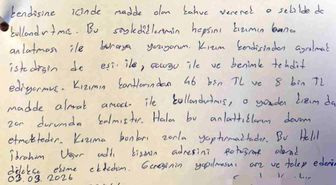 kendisine içinde madde olan kahve vererek o şekilde de
kullandırtmış. Bu söylediklerimin hepsini kızımın bana
anlatması ile buraya yazıyorum. Kızım kendisinden ayrılmak
istediğin de eşi ile, çocuğu ile ve benimle tehdit
ediyormuş. Kızımın kartlarından 46 bin TL ve 8 bin TL
madde almak amacı ile kullandırtmış, o yüzden kızım da
zor durumda kalmıştır. Hala bu anlattıklarım devam
etmektedir. Kızıma bunları zorla yaptırmaktadır. Bu Halil
İbrahim Uğur adlı kişinin adresini
dilekçe ekime ekledim. Gereğinin yapılmasını arz ve talep ederim
03.03.2026